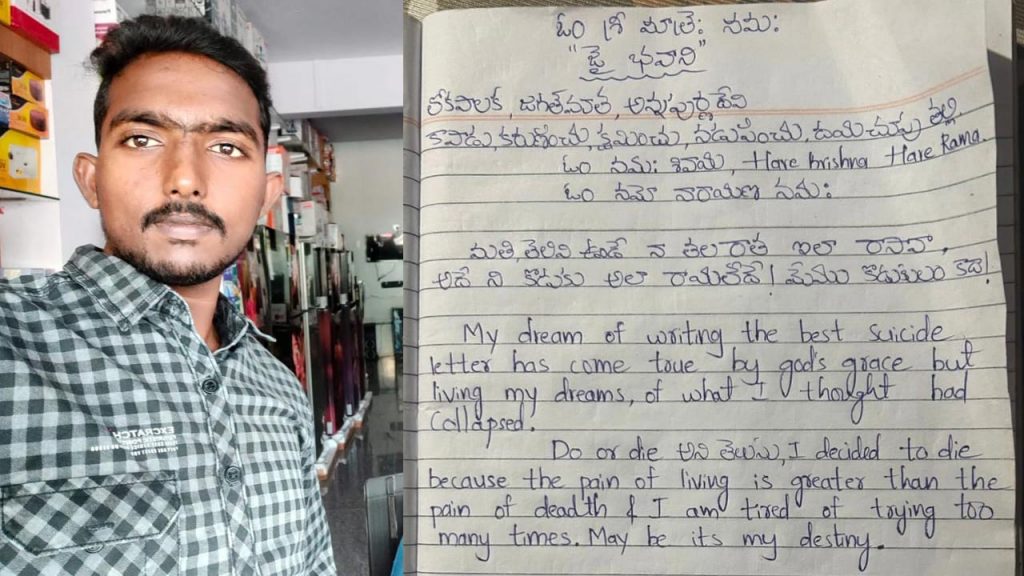 ఓం శ్రీ మాత్రే నమః
"జై భవాని"
లోకపాలక, జగత్‌మాత, అన్నపూర్ణదేవి
కాపాడు, కరుణించు, క్షమించు, నడిపించు, దయచూపు తల్లి
ఓం నమః శివాయ, Hare krishna Hare Rama.
ఓం నమో నారాయణ నమః
మతి తెలివి ఉండే నా తల రాత ఇలా రాసావా,
అదే ని కొడుకు అలా రాయలేదే! మేము కొడుకులం కదా!
My dream of writing the best suicide
letter has come true by god's grace but
living my dreams, of what I thought had
Collapsed.
Do or die అని తెలుసు, I decided to die
because the pain of living is greater than the
pain of deadth & I am tired of trying too
many times. May be its my destiny.
EXCRATCH